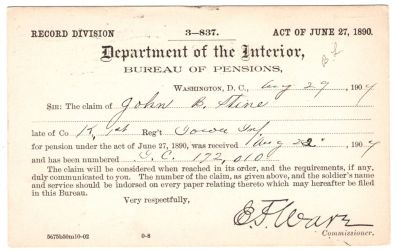 RECORD DIVISION 3—837. ACT OF JUNE 27, 1890.
Department of the Interior,
BUREAU OF PENSIONS,
WASHINGTON, D. C., Aug 29, 1904
SIR: The claim of John B. Stine
late of Co K, 1st Reg't Iowa Inf
for pension under the act of June 27, 1890, was received Aug 22 1904
and has been numbered 172,010
The claim will be considered when reached in its order, and the requirements, if any,
duly communicated to you. The number of the claim, as given above, and the soldier's name
and service should be indorsed on every paper relating thereto which may hereafter be filed
in this Bureau.
Very respectfully,
E. F. Ware
Commissioner.
5675b50m10-02 0-8